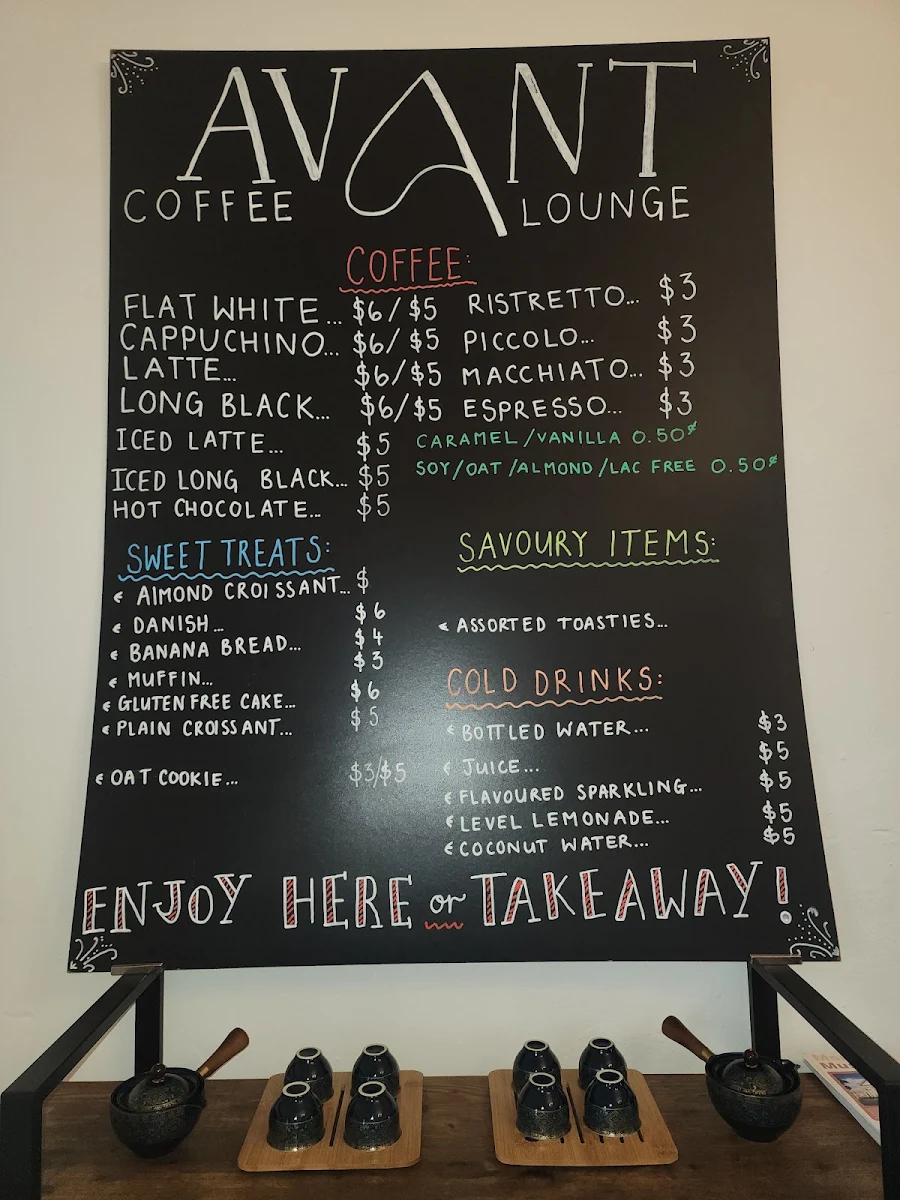 AVANT
COFFEE LOUNGE
COFFEE:
FLAT WHITE... $6/$5
CAPPUCHINO... $6/$5
LATTE... $6/$5
LONG BLACK... $6/$5
ICED LATTE... $5
ICED LONG BLACK... $5
HOT CHOCOLATE... $5
RISTRETTO... $3
PICCOLO... $3
MACCHIATO... $3
ESPRESSO... $3
CARAMEL/VANILLA 0.50¢
SOY/OAT/ALMOND/LAC FREE 0.50¢
SWEET TREATS:
ALMOND CROISSANT... $
DANISH... $6
BANANA BREAD... $4
MUFFIN... $3
GLUTEN FREE CAKE... $6
PLAIN CROISSANT... $5
OAT COOKIE... $3/$5
SAVOURY ITEMS:
ASSORTED TOASTIES...
COLD DRINKS:
BOTTLED WATER... $3
JUICE... $5
FLAVOURED SPARKLING... $5
LEVEL LEMONADE... $5
COCONUT WATER... $5
ENJOY HERE or TAKEAWAY!